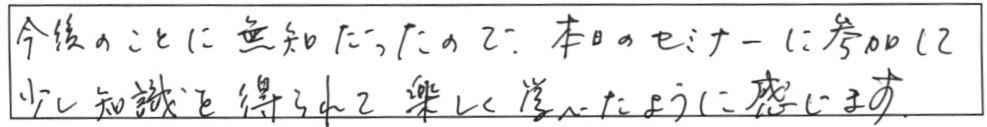 今後のことに無知だったので、本日のセミナーに参加して
少し知識を得られて楽しく学べたように感じます。